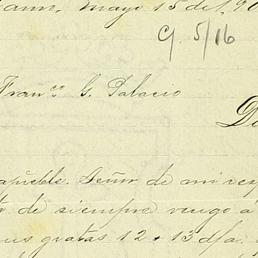 Mayo 15 de 190
G. 5/16
Franco G. Palacio
D
Señor de mi resp
de siempre vengo á
gratas 12 + 13 d/a.